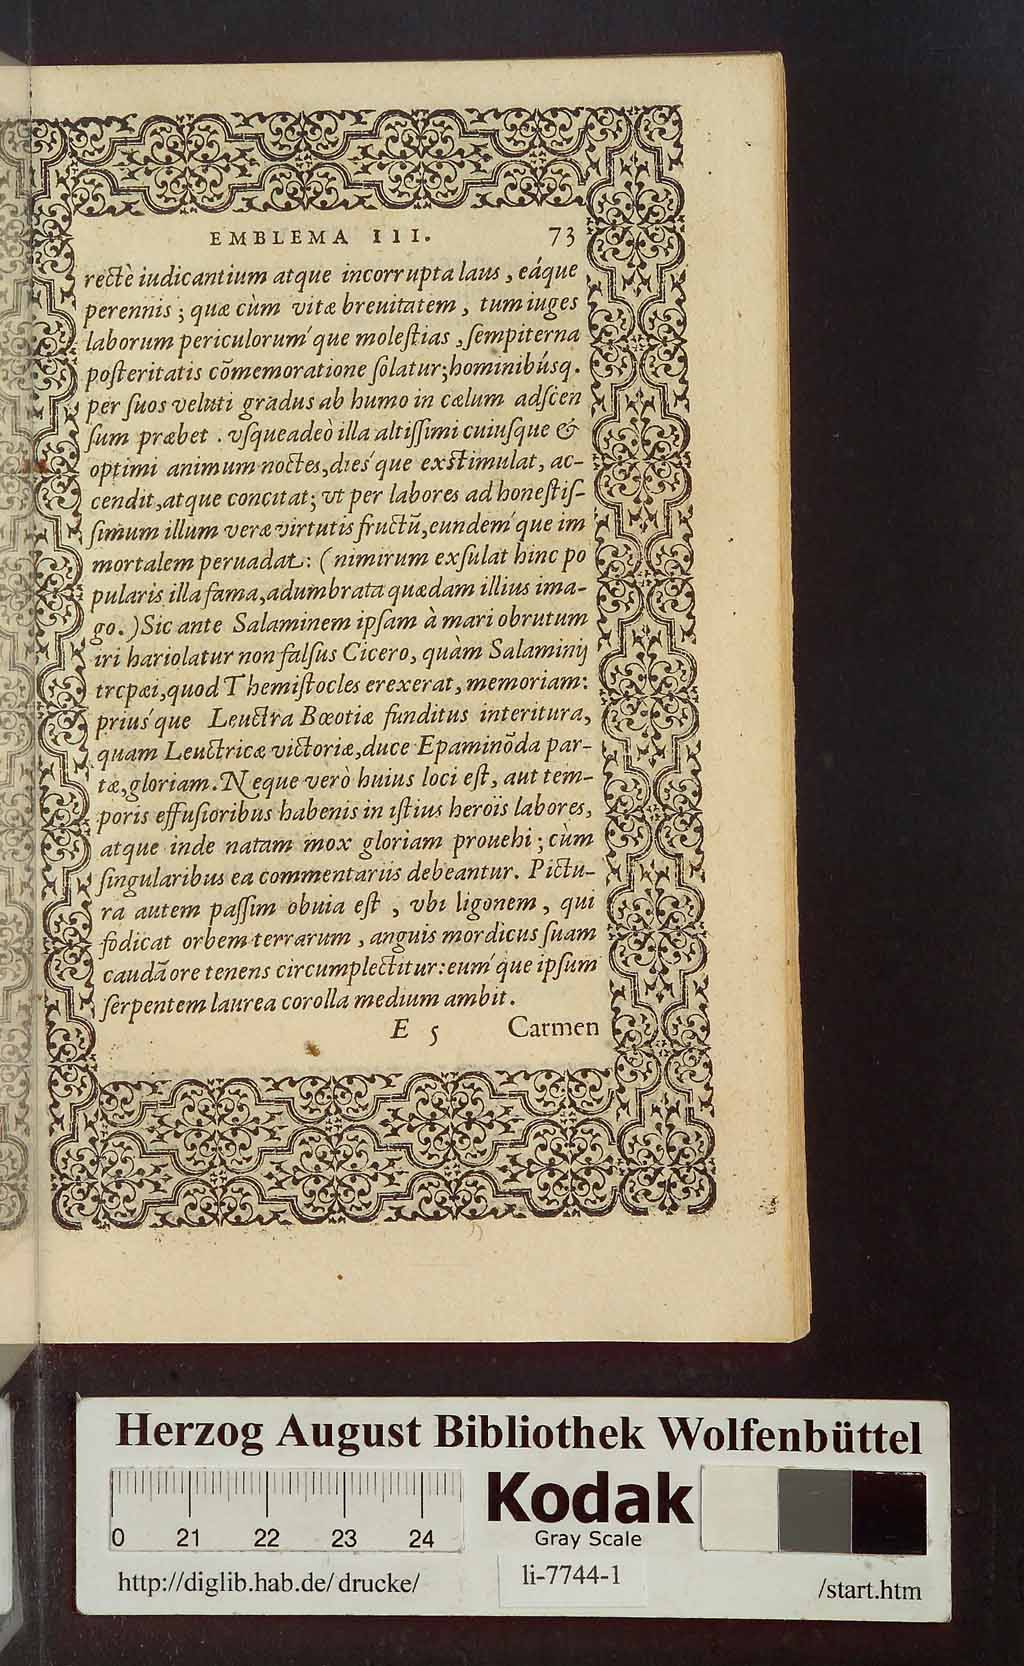 EMBLEMA III. 73
rectè iudicantium atque incorrupta laus, eáque
perennis; quæ cùm vitæ breuitatem, tum iuges
laborum periculorum'que molestias, sempiterna
posteritatis cōmemoratione solatur; hominibúsq.
per suos veluti gradus ab humo in cælum adscen
sum præbet. vsqueadeò illa altissimi cuiusque &
optimi animum noctes, dies'que exstimulat, ac-
cendit, atque concitat; vt per labores ad honestis-
simum illum veræ virtutis fructū, eundem'que im
mortalem peruadat: (nimirum exsulat hinc po
pularis illa fama, adumbrata quædam illius ima-
go.) Sic ante Salaminem ipsam à mari obrutum
iri hariolatur non falsus Cicero, quàm Salaminij
tropæi, quod Themistocles erexerat, memoriam:
prius'que Leuctra Bœotiæ funditus interitura,
quam Leuctricæ victoriæ, duce Epaminōda par-
tæ, gloriam. Neque verò huius loci est, aut tem-
poris effusioribus habenis in istius heroïs labores,
atque inde natam mox gloriam prouehi; cùm
singularibus ea commentariis debeantur. Pictu-
ra autem passim obuia est, vbi ligonem, qui
fodicat orbem terrarum, anguis mordicus suam
caudā ore tenens circumplectitur: eum'que ipsum
serpentem laurea corolla medium ambit.
E 5 Carmen
Herzog August Bibliothek Wolfenbüttel
0 21 22 23 24
Kodak
Gray Scale
http://diglib.hab.de/drucke/ li-7744-1 /start.htm